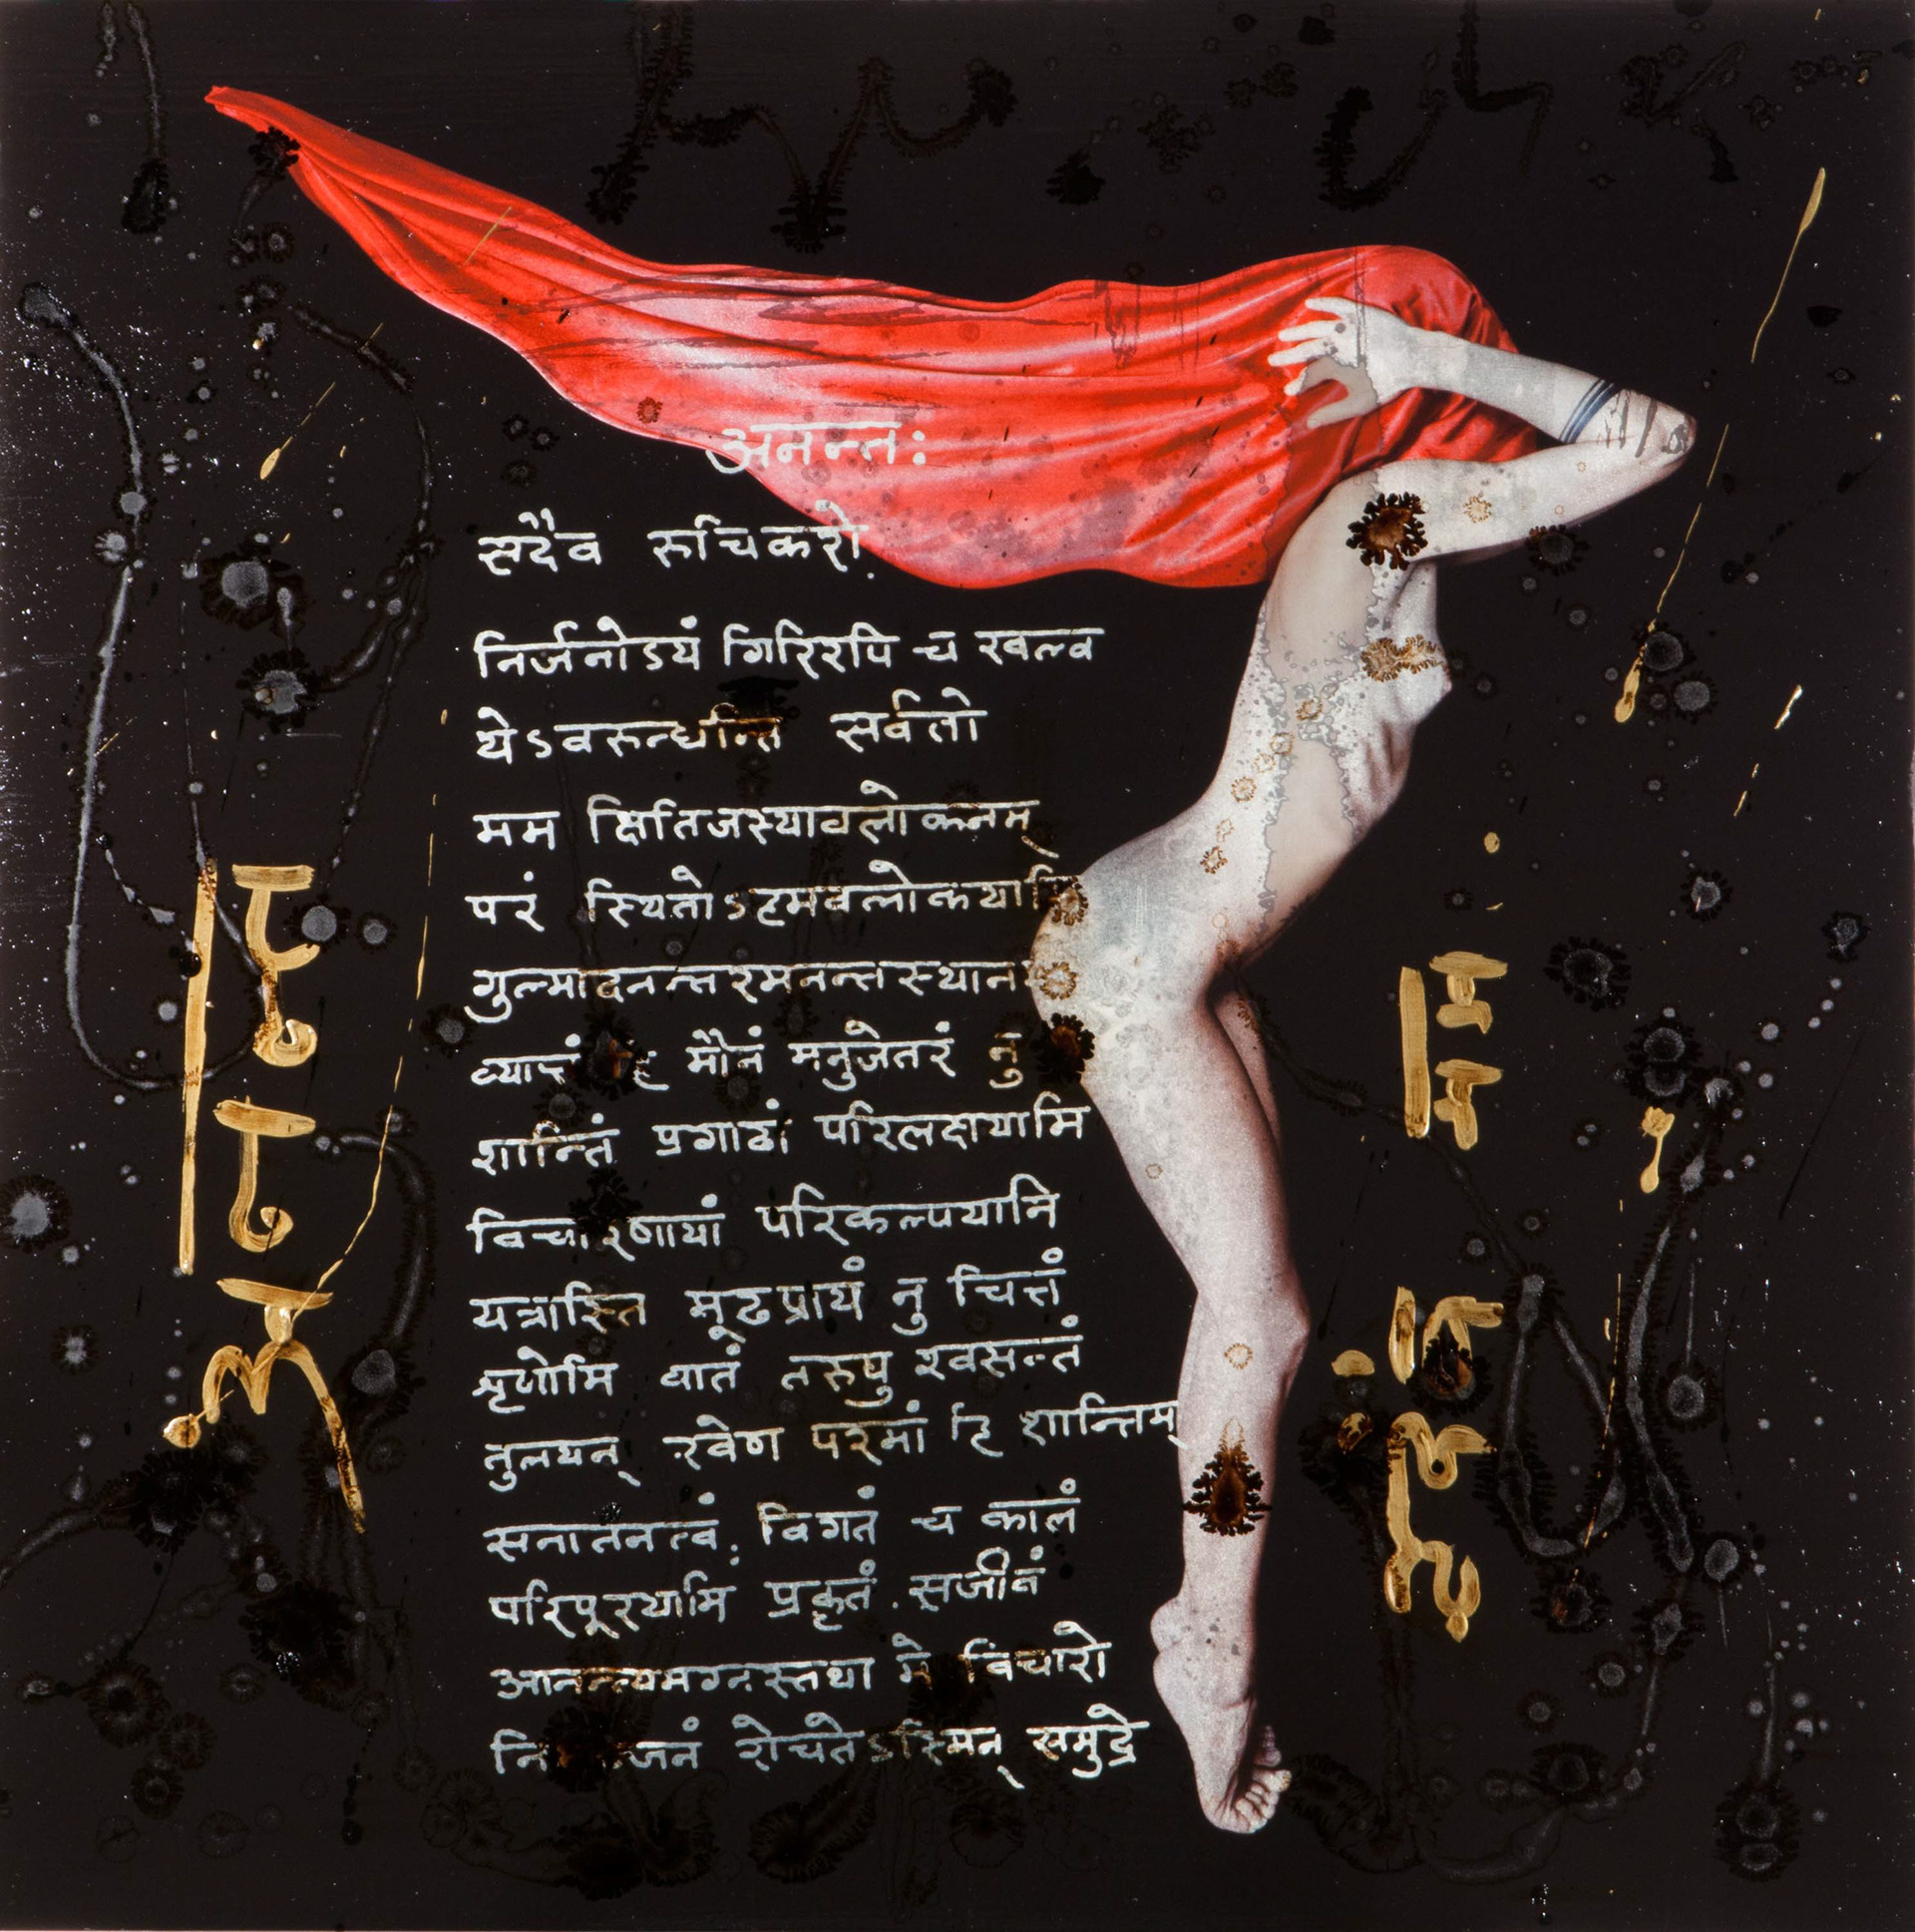 अनन्तः
सदैव रुचिकरो
निर्जनोऽयं गिरिरपि च खल्व
येऽवरुन्धन्ति सर्वतो
मम क्षितिजस्यावलोकनम्
परं स्थितोऽहमवलोकयामि
गुल्मादनन्तरमनन्तस्थान
मौनं मनुजेतरं नु
शान्तिं प्रगाढां परिलक्षयामि
विचारणायां परिकल्पयामि
यत्रास्ति मूढप्रायं नु चित्तं
शृणोमि वातं तरुषु श्वसन्तं
तुलयन् रवेण परमां हि शान्तिम्
सनातनत्वं विगतं च कालं
परिपूरयामि प्रकृतं सजीवं
आनन्त्यमग्नस्तथा मे विचारो
रोचतेऽस्मिन् समुद्रे